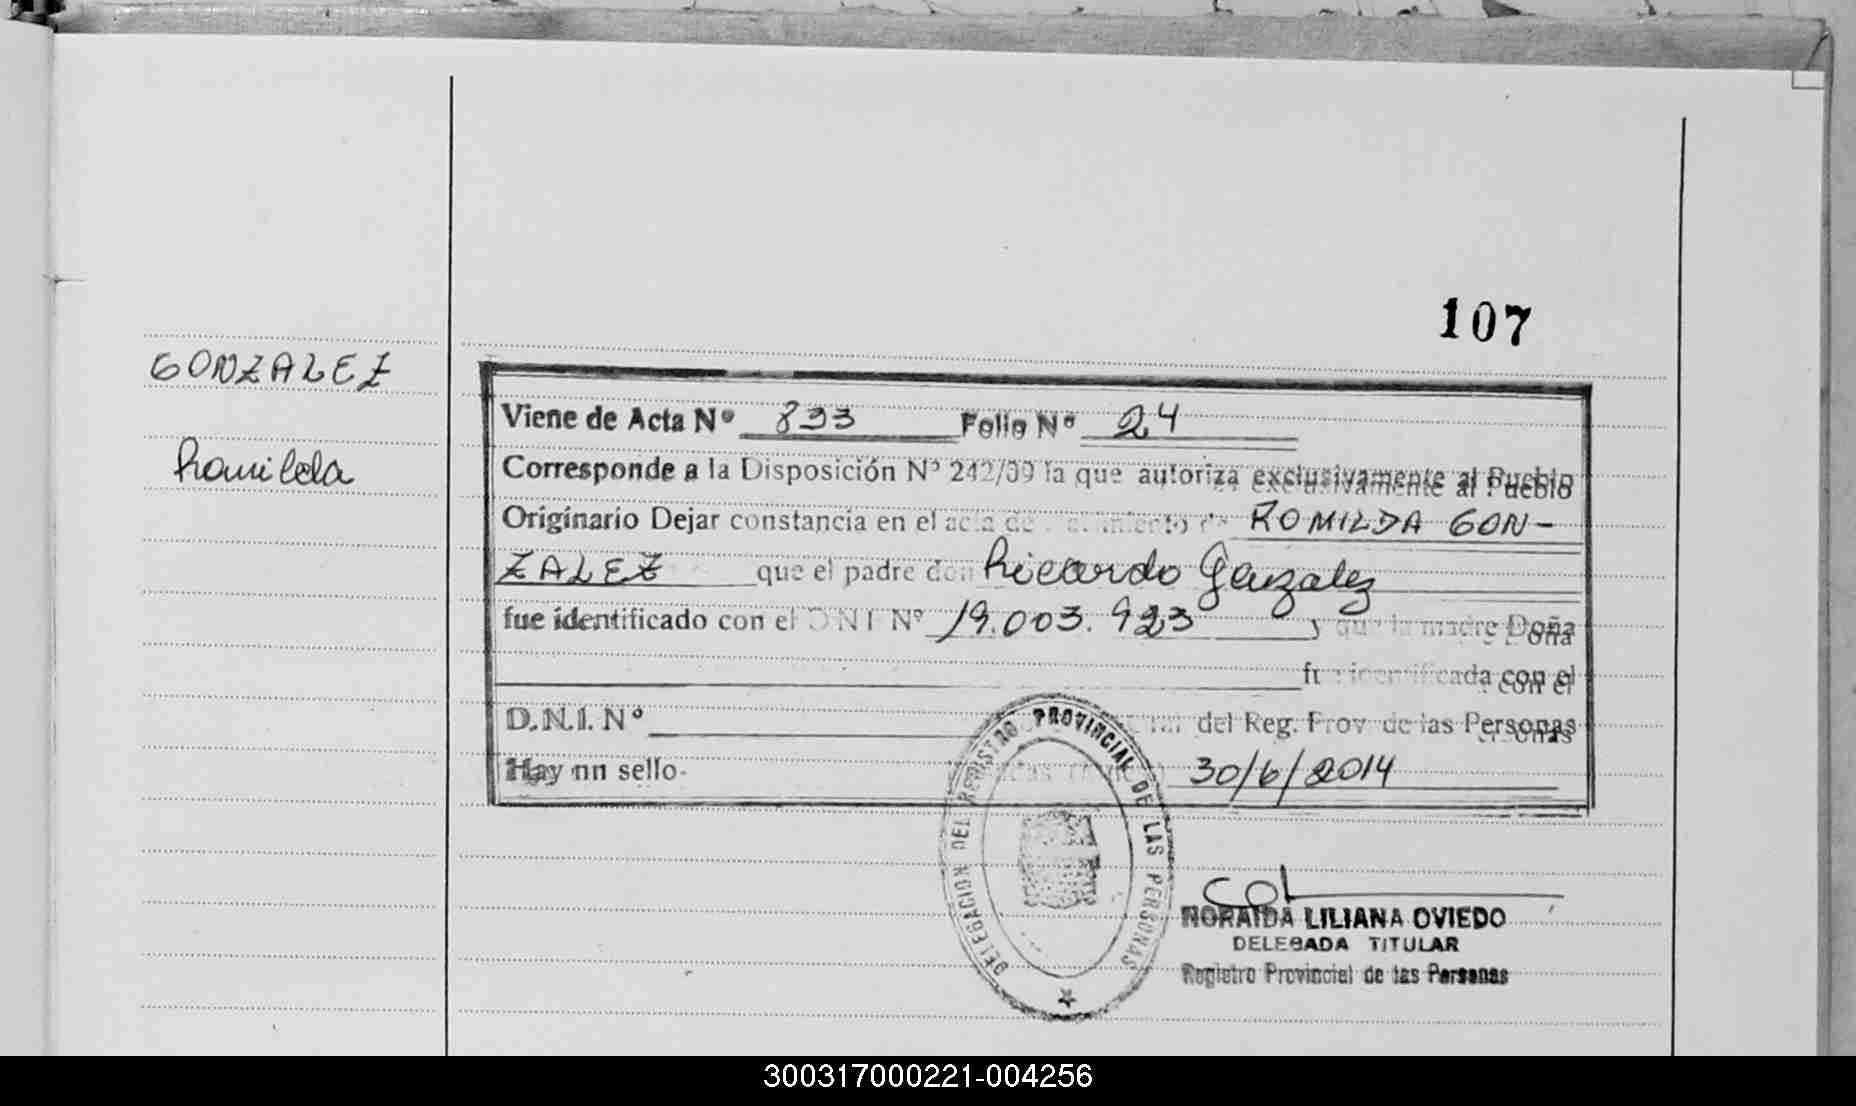 107
GONZALEZ
Romilda
Viene de Acta Nº 833 Folio Nº 24
Corresponde a la Disposición Nº 242/09 la que autoriza exclusivamente al Pueblo
Originario Dejar constancia en el acta de nacimiento de ROMILDA GON-
ZALEZ que el padre don Ricardo Gonzalez
fue identificado con el D N I Nº 19.003.923 y que la madre Doña
fue identificada con el
D.N.I. Nº del Reg. Prov de las Personas
Hay nn sello- 30/6/2014
DELEGACION DEL REGISTRO PROVINCIAL DE LAS PERSONAS
NORAIDA LILIANA OVIEDO
DELEGADA TITULAR
Registro Provincial de las Personas
300317000221-004256